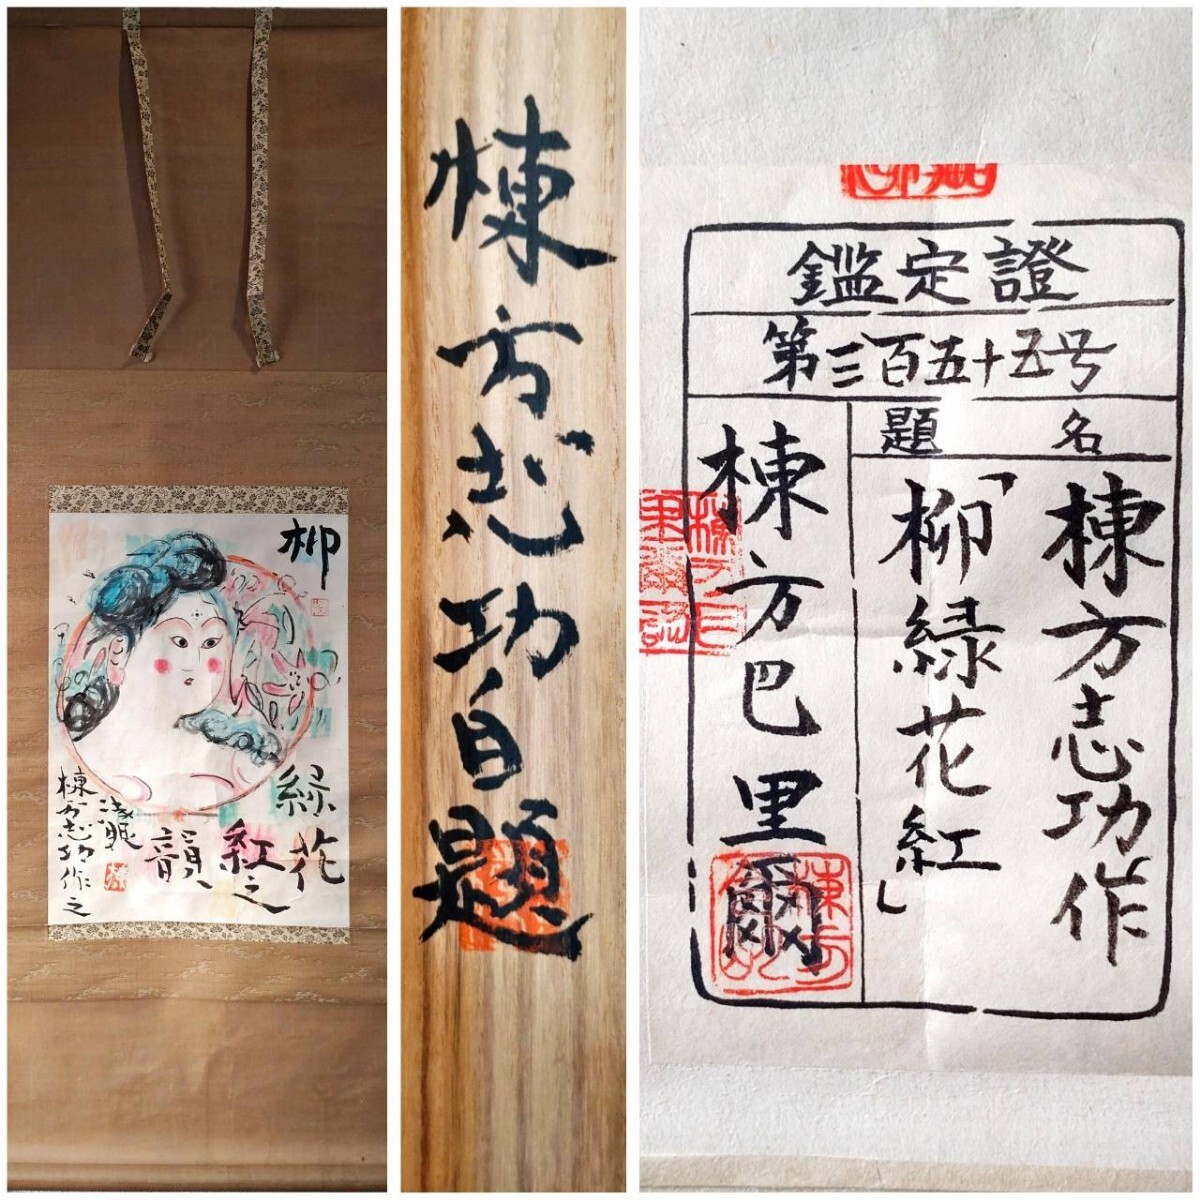 柳
緑花
紅之
韻
棟方志功作之
棟方志功自題
鑑定證
第三百五十五号
題名
棟方志功作
「柳緑花紅」
棟方巴里爾